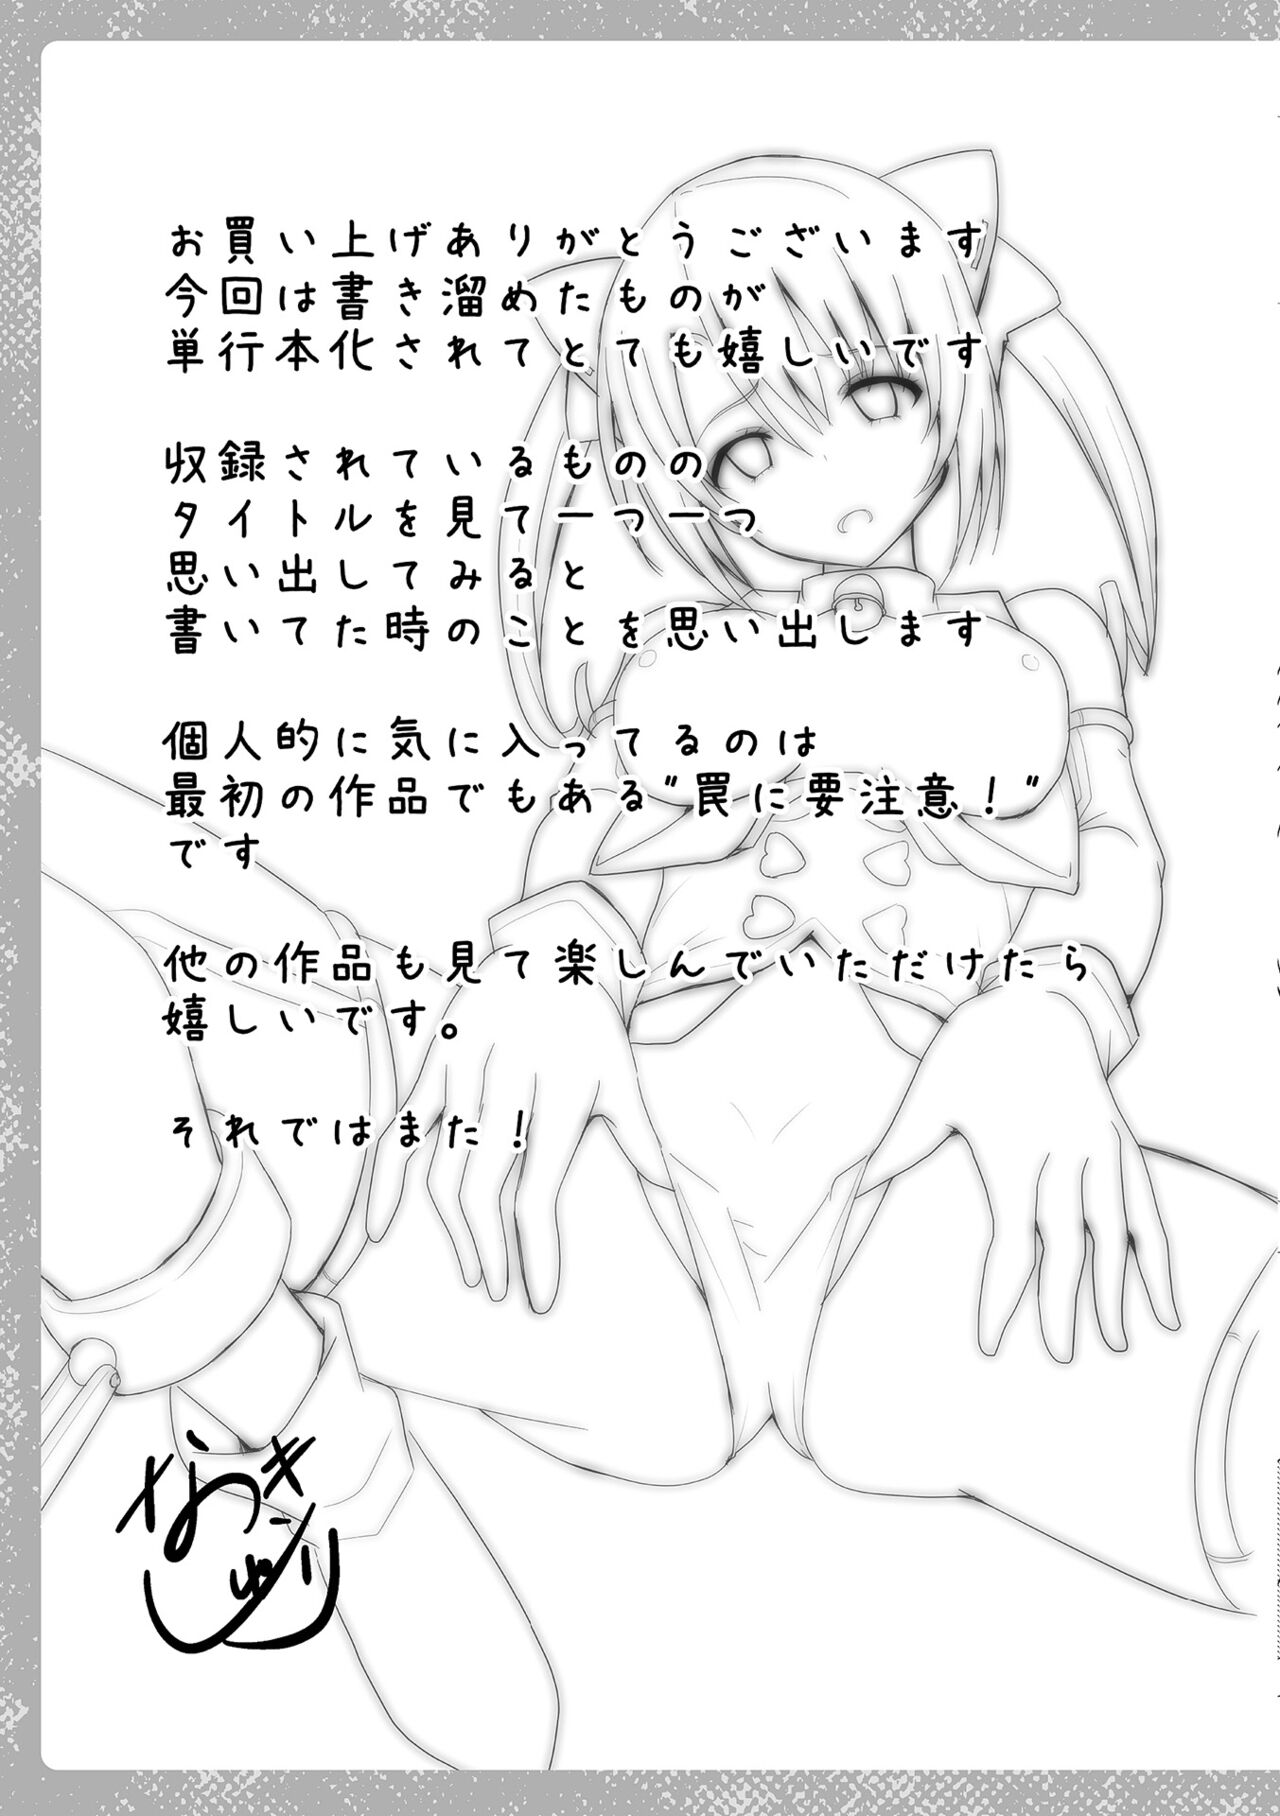 お買い上げありがとうございます
今回は書き溜めたものが
単行本化されてとても嬉しいです
収録されているものの
タイトルを見て一つ一つ
思い出してみると
書いてた時のことを思い出します
個人的に気に入ってるのは
最初の作品でもある"罠に要注意！"
です
他の作品も見て楽しんでいただけたら
嬉しいです。
それではまた！